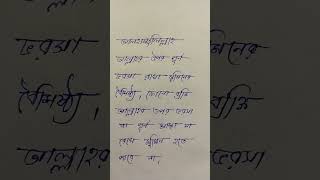 আলহামদুলিল্লাহ
আল্লাহর উপর পূর্ণ
ভরসা রাখা মুমিনের
বৈশিষ্ট্য, কোনো ব্যক্তি
আল্লাহর উপর ভরসা
বা পূর্ণ আস্থা না
রেখে মুমিন হতে
পারে না,
ভরসা
বৈশিষ্ট্য
আল্লাহর
মুমিনের
ব্যক্তি
ভরসা